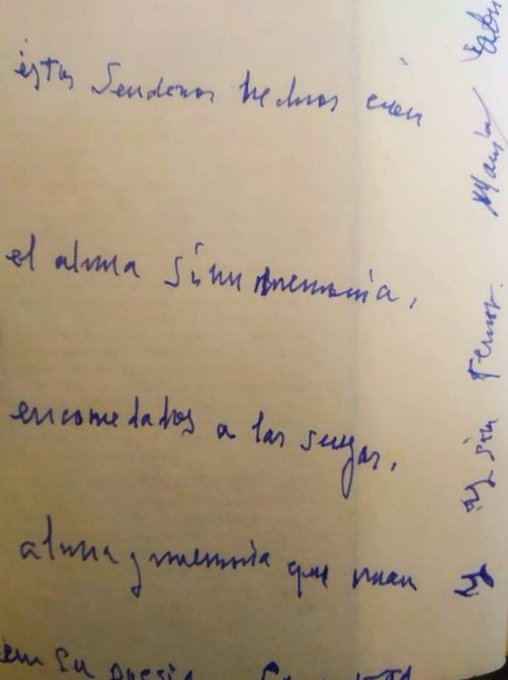 estos senderos hechos con
el alma sin memoria,
encomedados a las suyas,
alma y memoria que
en su poesía
y sin temor. María